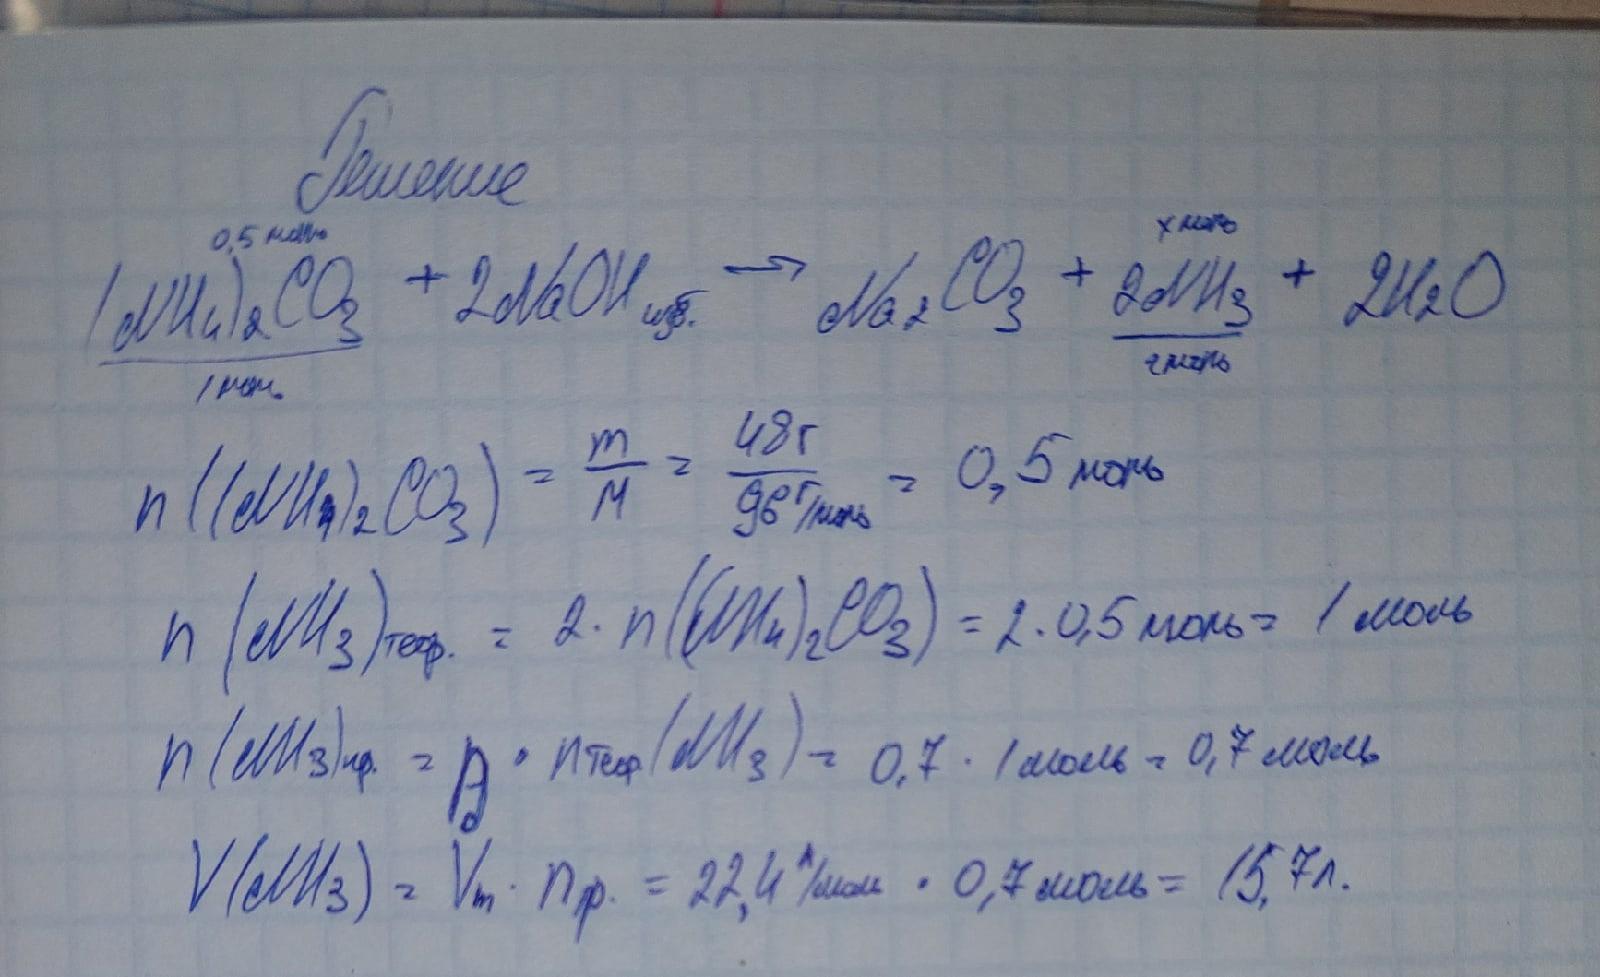 Решение
0,5 моль
x моль
(NH₄)₂CO₃ + 2NaOH изб. → Na₂CO₃ + 2NH₃ + 2H₂O
1 мол.
2 моль
n((NH₄)₂CO₃) = m/M = 48г/96 г/моль = 0,5 моль
n(NH₃)теор. = 2 · n((NH₄)₂CO₃) = 2 · 0,5 моль = 1 моль
n(NH₃)пр. = · nтеор(NH₃) = 0,7 · 1 моль = 0,7 моль
V(NH₃) = Vm · nпр. = 22,4 л/мол · 0,7 моль = 15,7л.